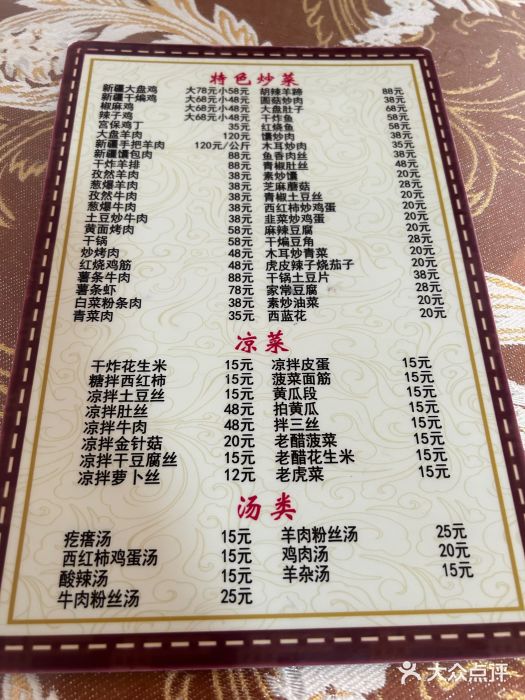 特色炒菜
新疆大盘鸡 大78元小58元
新疆干煸鸡 大68元小48元
椒麻鸡 大68元小48元
辣子鸡 大68元小48元
宫保鸡丁 35元
大盘羊肉 120元
新疆手把羊肉 120元/公斤
新疆馕包肉 88元
干炸羊排 88元
孜然羊肉 58元
葱爆羊肉 58元
孜然牛肉 38元
葱爆牛肉 38元
土豆炒牛肉 38元
黄面烤肉 58元
干锅 58元
炒烤肉 38元
红烧鸡筋 48元
薯条牛肉 88元
薯条虾 78元
白菜粉条肉 38元
青菜肉 35元
胡辣羊蹄 88元
圆菇炒肉 38元
大盘肚子 68元
干炸鱼 58元
红烧鱼 58元
馕炒肉 38元
木耳炒肉 35元
鱼香肉丝 38元
青椒肚丝 48元
素炒馕 20元
芝麻蘑菇 28元
青椒土豆丝 20元
西红柿炒鸡蛋 20元
韭菜炒鸡蛋 20元
麻辣豆腐 20元
干煸豆角 28元
木耳炒青菜 20元
虎皮辣子烧茄子 20元
干锅土豆片 38元
家常豆腐 28元
素炒油菜 20元
西蓝花 20元
凉菜
干炸花生米 15元
糖拌西红柿 15元
凉拌土豆丝 15元
凉拌肚丝 48元
凉拌牛肉 48元
凉拌金针菇 20元
凉拌干豆腐丝 15元
凉拌萝卜丝 12元
凉拌皮蛋 15元
菠菜面筋 15元
黄瓜段 15元
拍黄瓜 15元
拌三丝 15元
老醋菠菜 15元
老醋花生米 15元
老虎菜 15元
汤类
疙瘩汤 15元
西红柿鸡蛋汤 15元
酸辣汤 15元
牛肉粉丝汤 25元
羊肉粉丝汤 25元
鸡肉汤 20元
羊杂汤 15元
大众点评